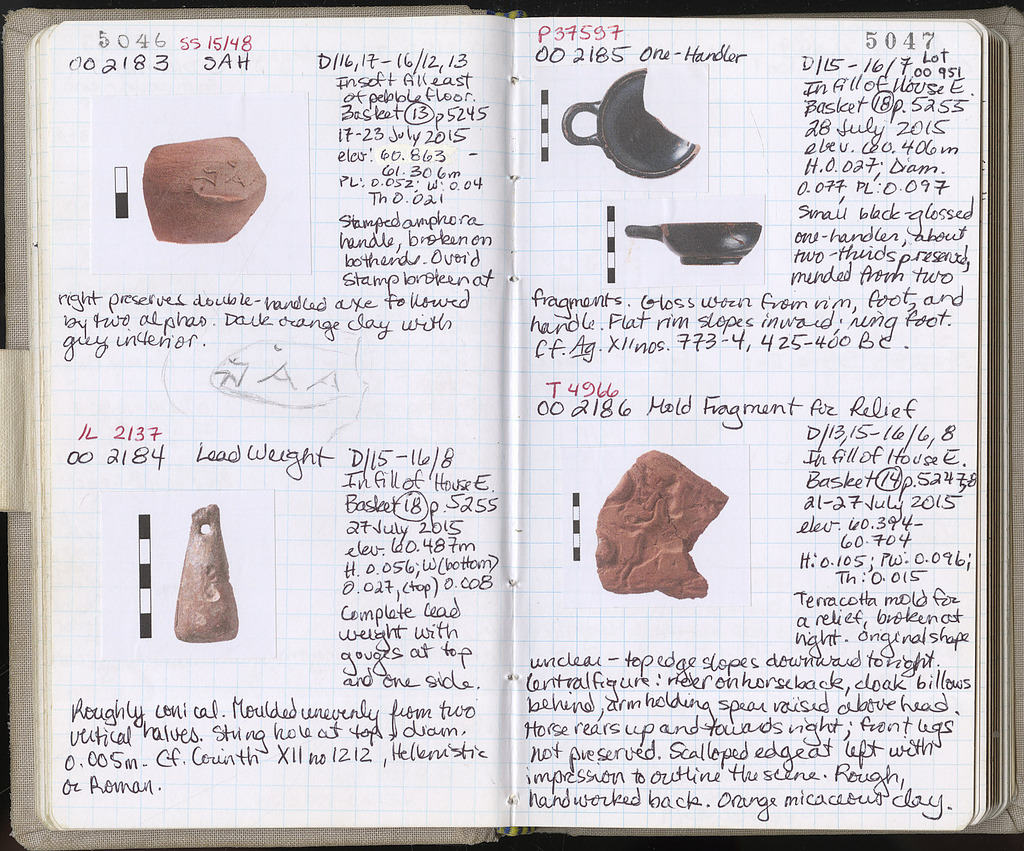 5046 SS 15/48
OO 2183 SAH D/16,17-16/12,13
In soft fill east
of pebble floor.
Basket (13) p 5245
17-23 July 2015
elev: 60.863 -
61.306m
PL: 0.052; W: 0.04
Th 0.021
Stamped amphora
handle, broken on
both ends. Ovoid
stamp broken at
right preserves double-handled axe followed
by two alphas. Dark orange clay with
grey interior.
Α Α
IL 2137
OO 2184 Lead Weight D/15-16/8
In fill of House E.
Basket (18) p. 5255
27 July 2015
elev. 60.487m
H. 0.056; W (bottom)
0.027, (top) 0.008
Complete lead
weight with
gouges at top
and one side.
Roughly conical. Moulded unevenly from two
vertical halves. String hole at top, diam.
0.005m. Cf. Corinth XII no 1212, Hellenistic
or Roman.
P 37597 5047
OO 2185 One-Handler D/15-16/7 Lot
OO 951
In fill of House E.
Basket (18) p. 5255
28 July 2015
elev. 60.406m
H. 0.027; Diam.
0.077, PL: 0.097
Small black-glossed
one-handler, about
two-thirds preserved,
mended from two
fragments. Gloss worn from rim, foot, and
handle. Flat rim slopes inward; ring foot.
Cf. Ag. XII nos. 773-4, 425-400 BC.
T 4966
OO 2186 Mold Fragment for Relief
D/13,15-16/6,8
In fill of House E.
Basket (14) p. 5247,8
21-27 July 2015
elev. 60.394-
60.704
H: 0.105; PW: 0.096;
Th: 0.015
Terracotta mold for
a relief, broken at
right. Original shape
unclear - top edge slopes downward to right.
Central figure: rider on horseback, cloak billows
behind, arm holding spear raised above head.
Horse rears up and towards right; front legs
not preserved. Scalloped edge at left with
impression to outline the scene. Rough,
handworked back. Orange micaceous clay.